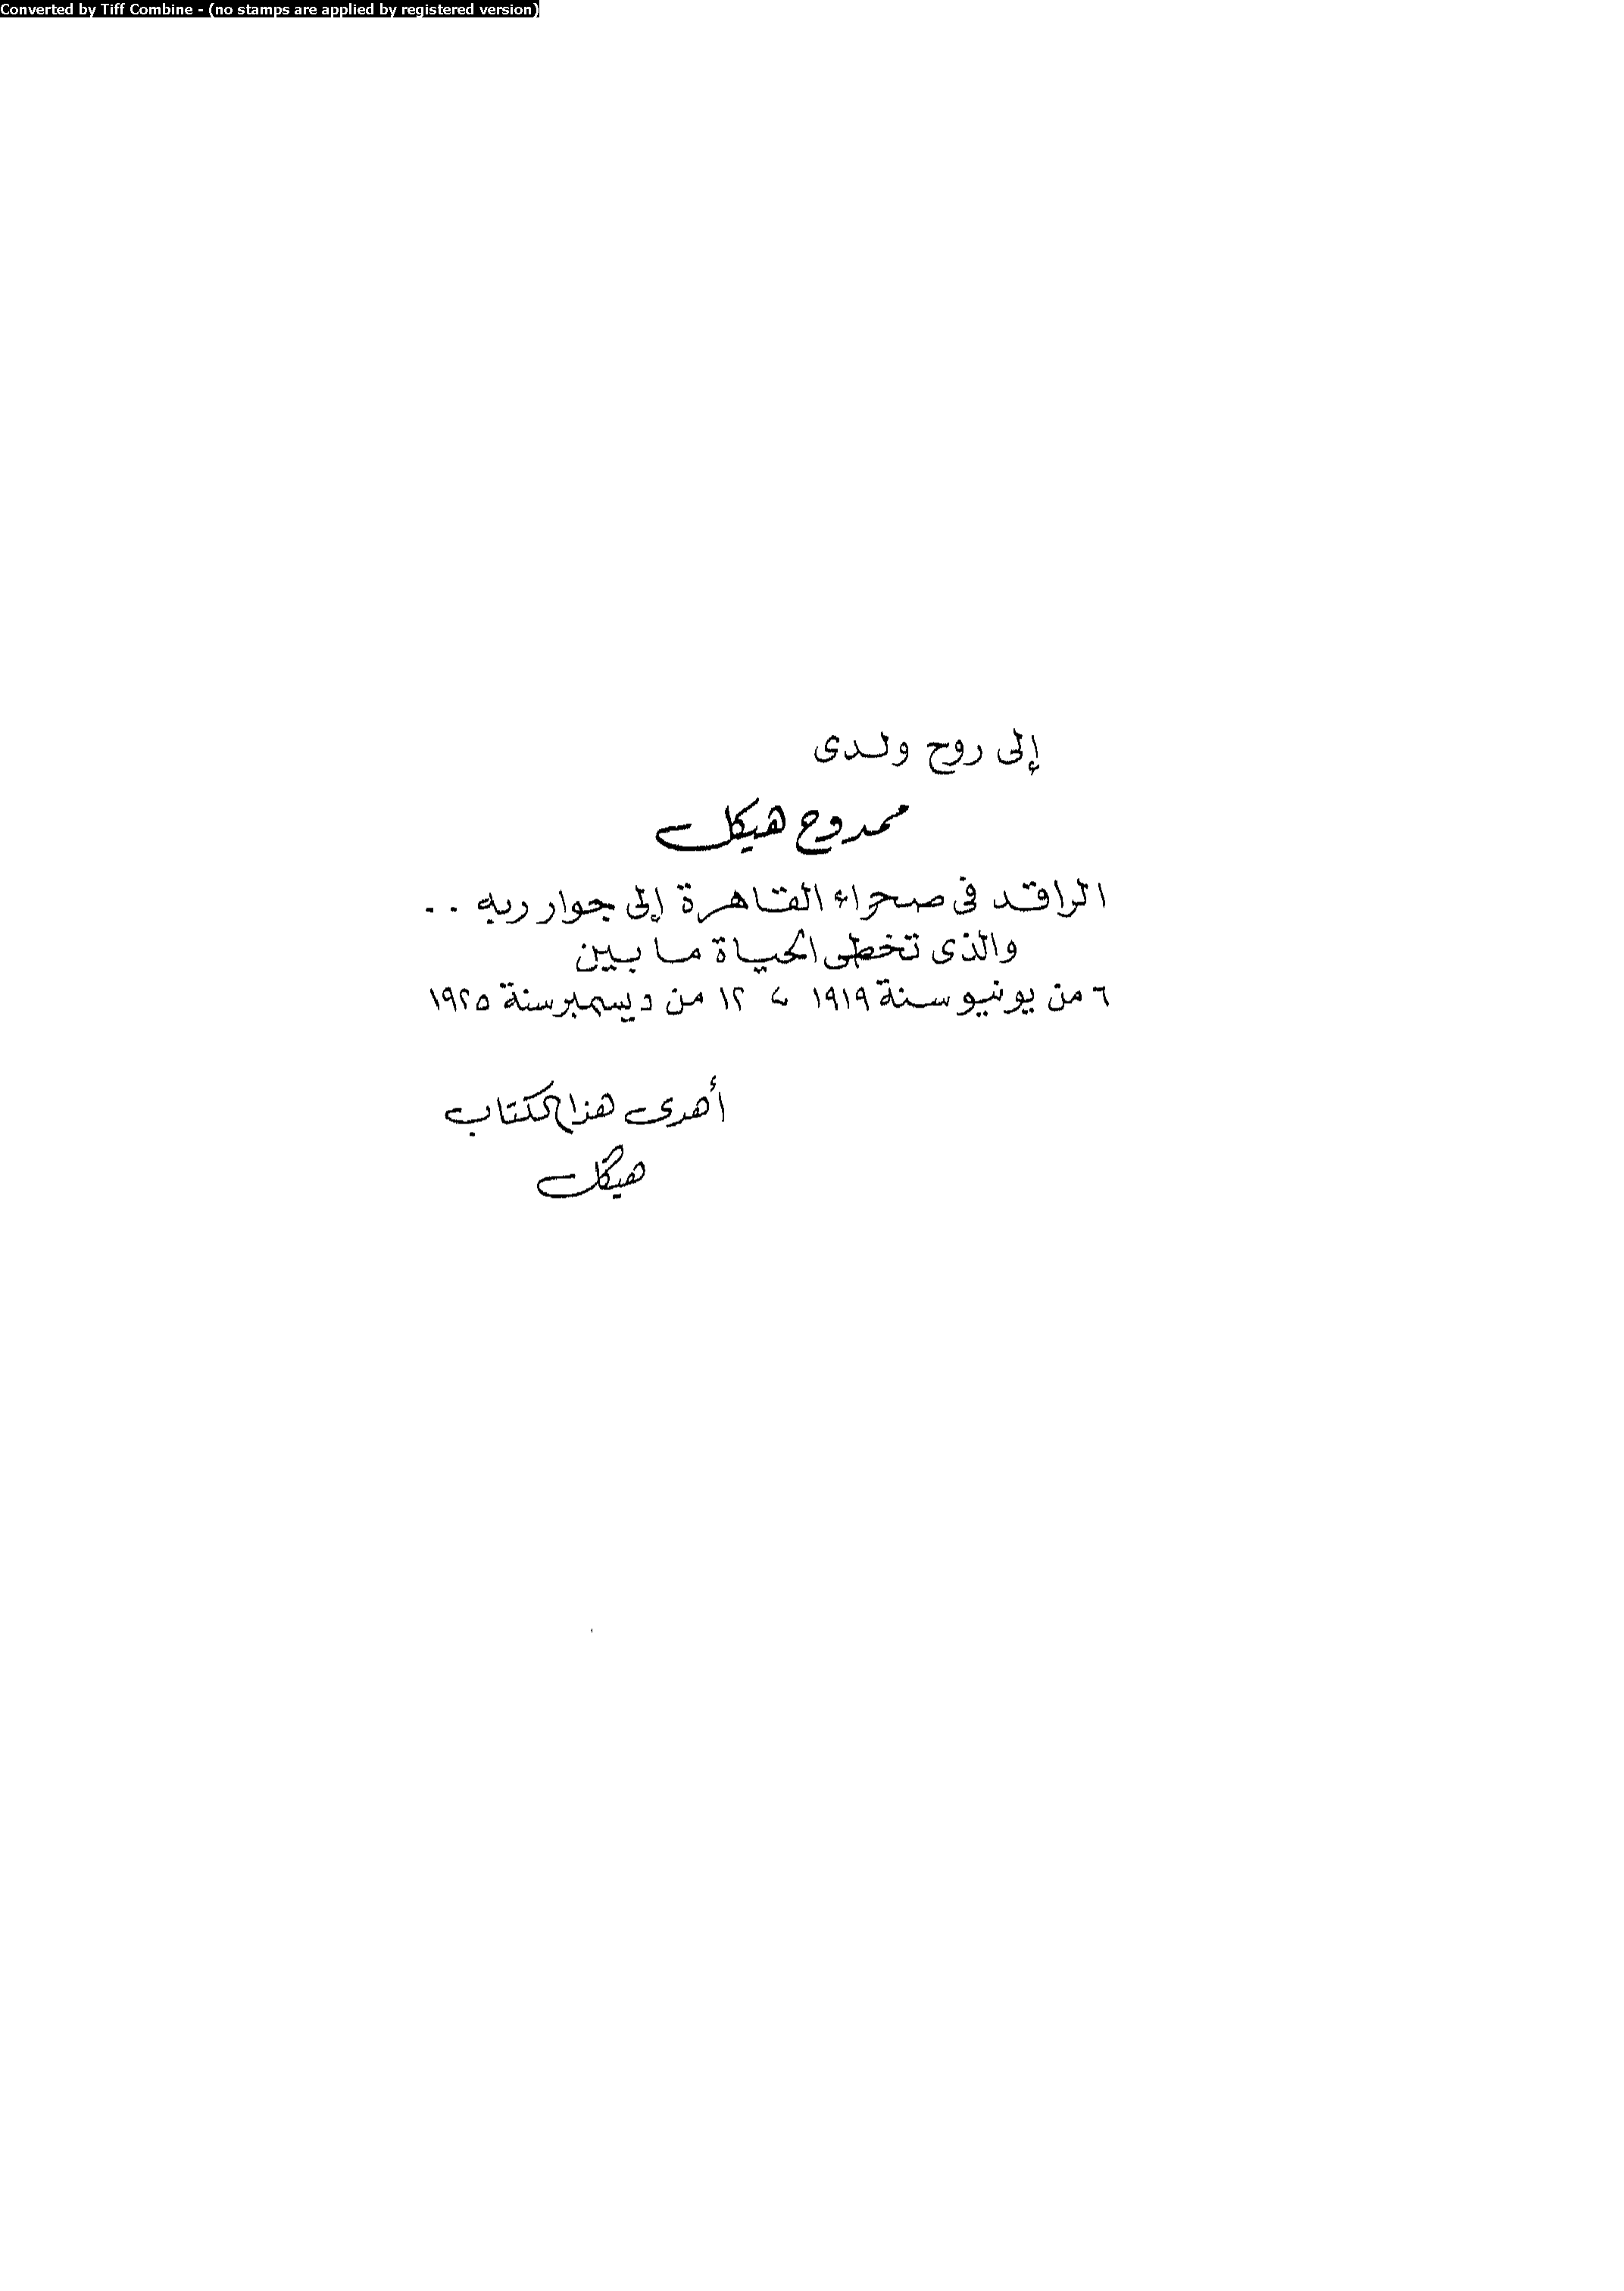 Converted by Tiff Combine - (no stamps are applied by registered version)
إلى روح ولدى
ممدوح هيكل
الراقد فى صحراء القاهرة إلى جوار ربه ..
والذى تخطى الحياة ما بين
٦ من يونيو سنة ١٩١٩ ، ١٢ من ديسمبر سنة ١٩٢٥
أهدى هذا الكتاب
هيكل